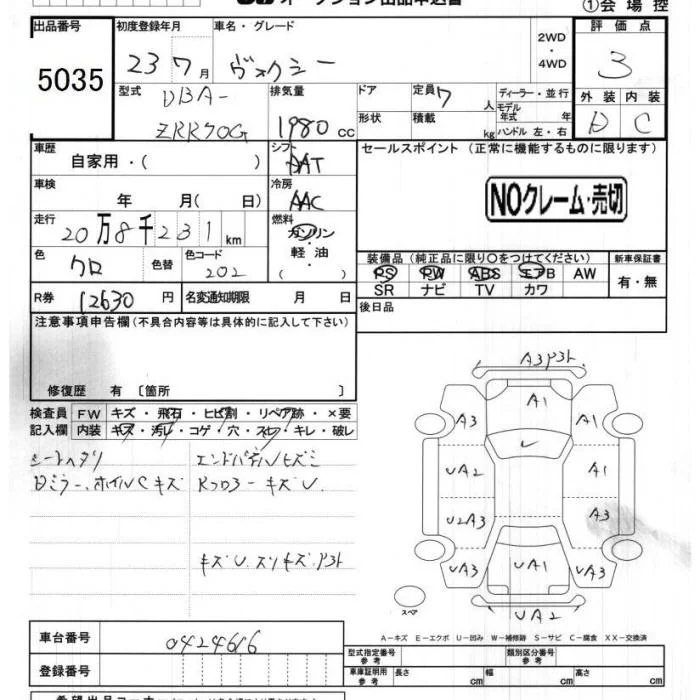 オークション出品申込書
①会場控
出品番号 5035
初度登録年月 23 7月
車名・グレード ヴォクシー
2WD・4WD
評価点 3
型式 DBA-ZRR70G
排気量 1980 cc
ドア
形状
定員 7 人
積載 kg
ディーラー・並行
モデル年式 年
ハンドル 左・右
外装 D
内装 C
車歴 自家用・( )
シフト DAT
セールスポイント (正常に機能するものに限ります)
NOクレーム・売切
車検 年 月( 日)
冷房 AAC
走行 20万8千231km
燃料 ガソリン・軽油・( )
色 クロ 色替
色コード 202
装備品 (純正品に限り〇をつけてください)
PS PW ABS エアB AW
SR ナビ TV カワ
新車保証書 有・無
R券 12630円
名変通知期限 月 日
後日品
注意事項申告欄(不具合内容等は具体的に記入して下さい)
修復歴 有 〔箇所 〕
検査員記入欄
FW キズ・飛石・ヒビ割・リペア跡・×要
内装 キズ・汚レ・コゲ・穴・スレ・キレ・破レ
シートヘタリ
Dミラー、ホイルCキズ
RフロアーキズU
A3
A1
A3 A1
UA2 A1
U2A3 A3
UA3 UA1 UA3
UA2
スペア
A-キズ E-エクボ U-凹み W-補修跡 S-サビ C-腐食 XX-交換済
車台番号 0424616
登録番号
型式指定番号 参考
類別区分番号 参考
車庫証明用 参考 長さ cm 幅 cm 高さ cm